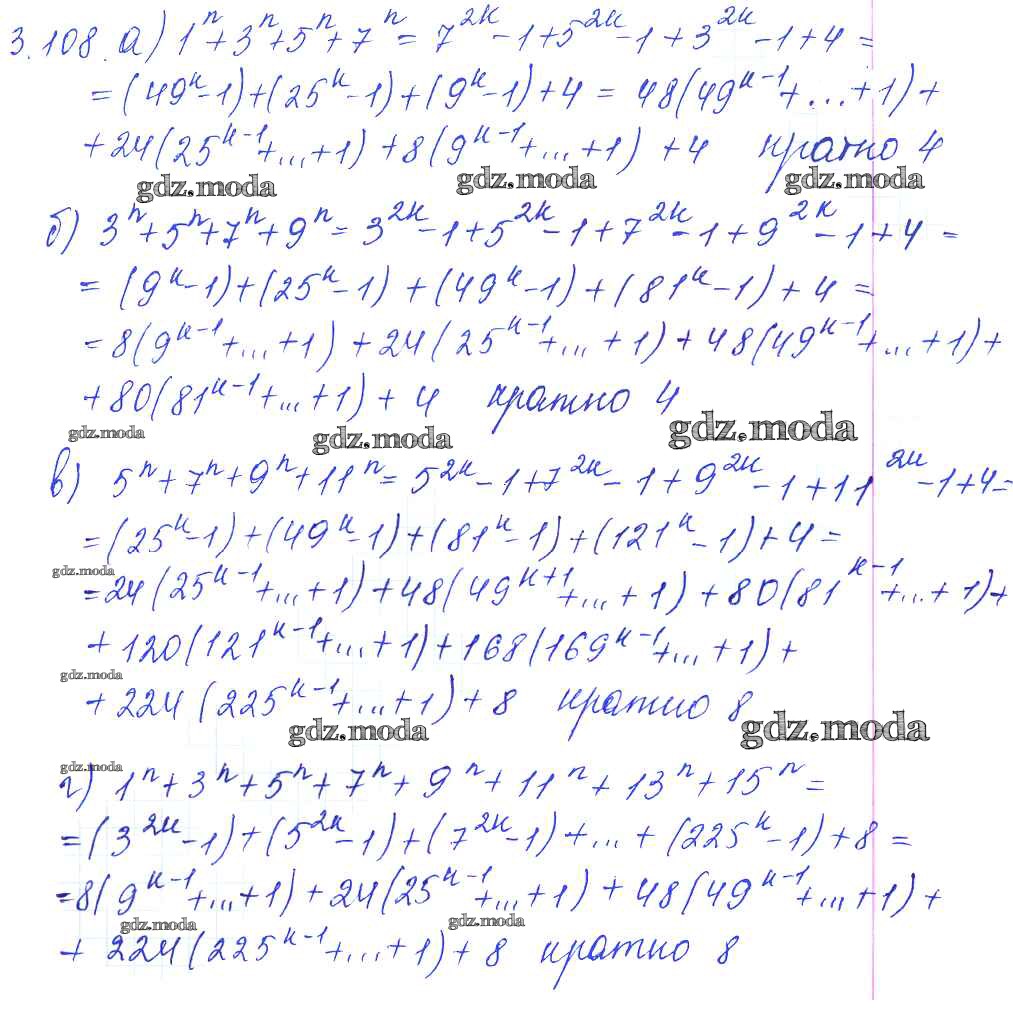 3.108. а) 1ⁿ+3ⁿ+5ⁿ+7ⁿ = 7²ᵏ-1+5²ᵏ-1+3²ᵏ-1+4 =
= (49ᵏ-1)+(25ᵏ-1)+(9ᵏ-1)+4 = 48(49ᵏ⁻¹+...+1)+
+24(25ᵏ⁻¹+...+1)+8(9ᵏ⁻¹+...+1)+4 кратно 4
gdz.moda gdz.moda gdz.moda
б) 3ⁿ+5ⁿ+7ⁿ+9ⁿ = 3²ᵏ-1+5²ᵏ-1+7²ᵏ-1+9²ᵏ-1+4 =
= (9ᵏ-1)+(25ᵏ-1)+(49ᵏ-1)+(81ᵏ-1)+4 =
=8(9ᵏ⁻¹+...+1)+24(25ᵏ⁻¹+...+1)+48(49ᵏ⁻¹+...+1)+
+80(81ᵏ⁻¹+...+1)+4 кратно 4
gdz.moda gdz.moda gdz.moda
в) 5ⁿ+7ⁿ+9ⁿ+11ⁿ = 5²ᵏ-1+7²ᵏ-1+9²ᵏ-1+11²ᵏ-1+4=
=(25ᵏ-1)+(49ᵏ-1)+(81ᵏ-1)+(121ᵏ-1)+4=
gdz.moda
=24(25ᵏ⁻¹+...+1)+48(49ᵏ⁺¹+...+1)+80(81ᵏ⁻¹+...+1)+
+120(121ᵏ⁻¹+...+1)+168(169ᵏ⁻¹+...+1)+
gdz.moda
+224(225ᵏ⁻¹+...+1)+8 кратно 8
gdz.moda gdz.moda
gdz.moda
г) 1ⁿ+3ⁿ+5ⁿ+7ⁿ+9ⁿ+11ⁿ+13ⁿ+15ⁿ=
=(3²ᵏ-1)+(5²ᵏ-1)+(7²ᵏ-1)+...+(225ᵏ-1)+8=
=8(9ᵏ⁻¹+...+1)+24(25ᵏ⁻¹+...+1)+48(49ᵏ⁻¹+...+1)+
gdz.moda gdz.moda
+224(225ᵏ⁻¹+...+1)+8 кратно 8